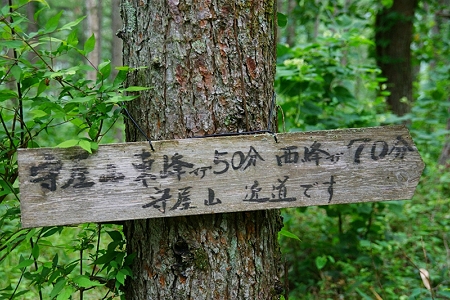 守屋山 東峰 50分 西峰 70分
守屋山 近道です